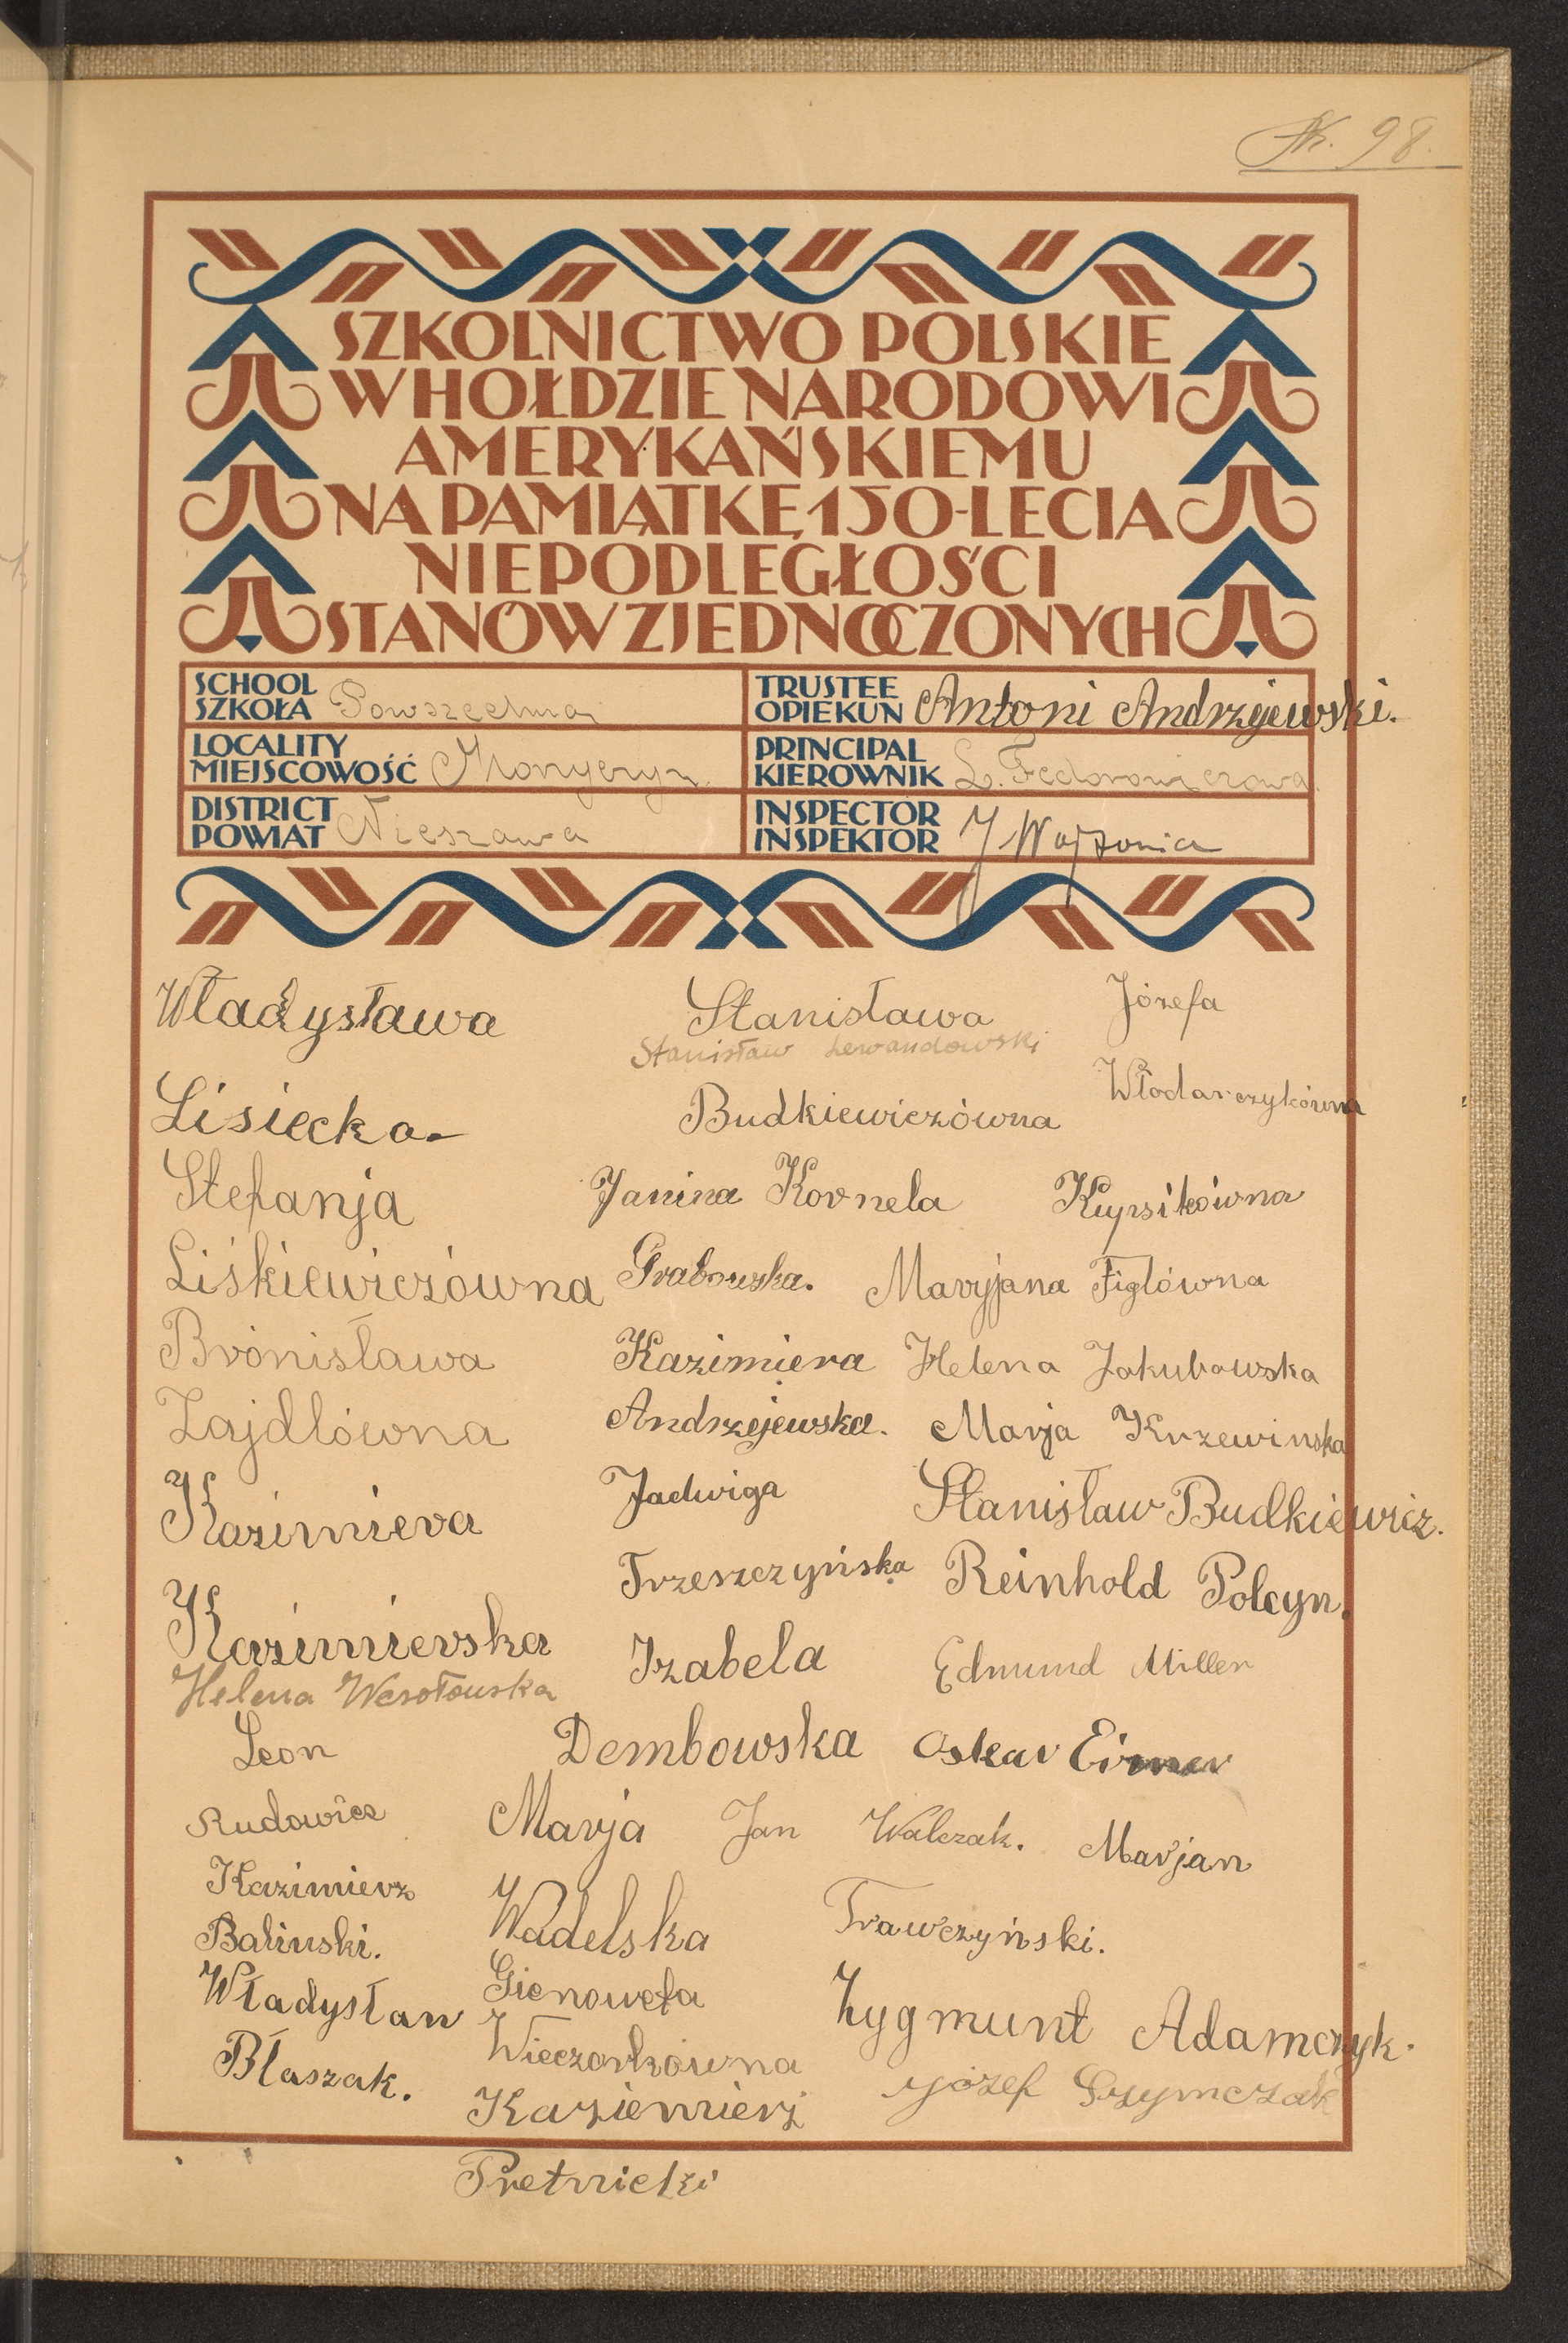 98.
SZKOLNICTWO POLSKIE
W HOŁDZIE NARODOWI
AMERYKAŃSKIEMU
NA PAMIĄTKĘ 150-LECIA
NIEPODLEGŁOŚCI
STANÓW ZJEDNOCZONYCH
SCHOOL
SZKOŁA Powszechna
TRUSTEE
OPIEKUN Antoni Andrzejewski.
LOCALITY
MIEJSCOWOŚĆ
PRINCIPAL
KIEROWNIK L. Fedorowiczowa
DISTRICT
POWIAT Nieszawa
INSPECTOR
INSPEKTOR
Władysława
Lisiecka
Stefanja
Liśkiewiczówna
Bronisława
Zajdlówna
Kazimiera
Kazimierska
Helena Wesołowska
Leon
Rudowicz
Kazimierz
Balinski.
Władysław
Błaszak.
Stanisława
Stanisław Lewandowski
Budkiewiczówna
Janina Kornela
Grabowska.
Kazimiera
Andrzejewska.
Jadwiga
Trzeszczyńska
Izabela
Dembowska
Marja
Wadelska
Gienowefa
Wieczorkówna
Kazimierz
Józefa
Włodarczykówna
Kupsikówna
Maryjana Figlówna
Helena Jakubowska
Marja Krzewinska
Stanisław Budkiewicz.
Reinhold Polcyn.
Edmund Miller
Oskar
Jan Walczak.
Marjan
Trawczyński.
Zygmunt Adamczyk.
Józef Szymczak